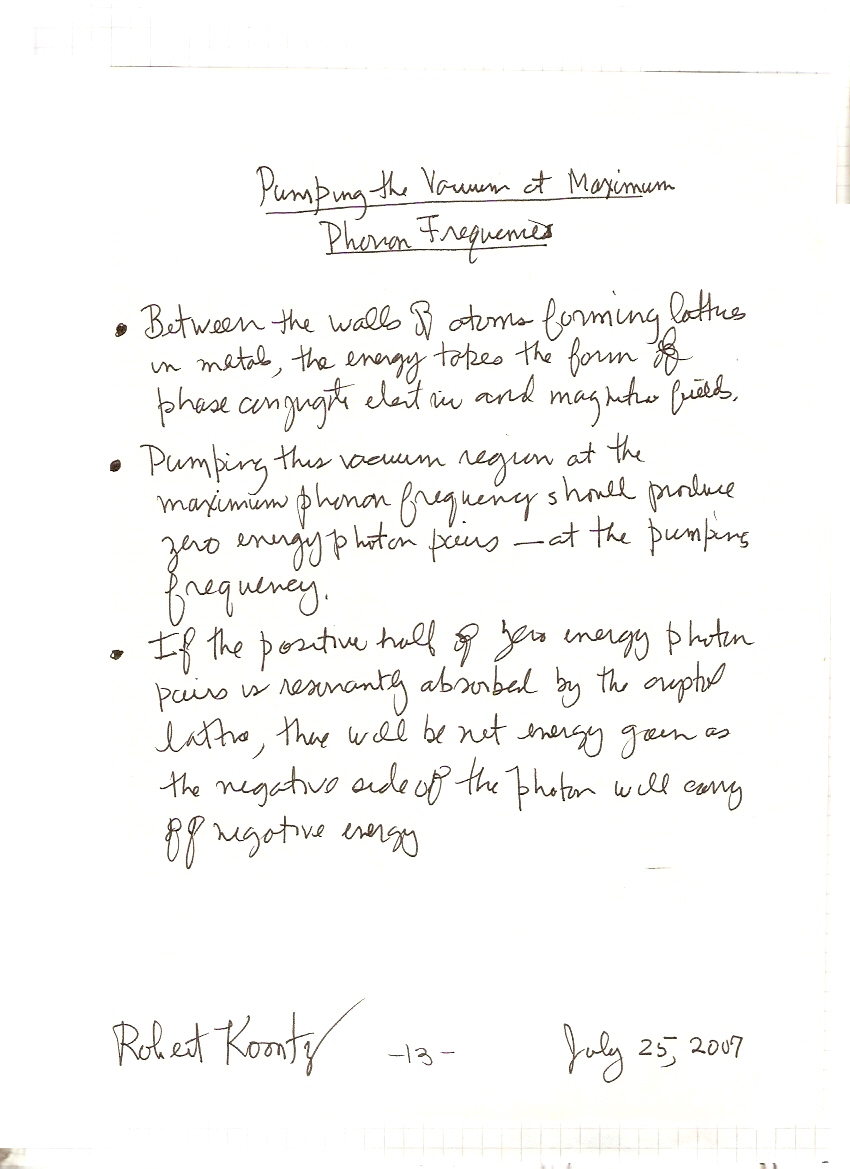 Pumping the Vacuum at Maximum
Phonon Frequencies
• Between the walls of atoms forming lattices
in metals, the energy takes the form of
phase conjugate electric and magnetic fields.
• Pumping this vacuum region at the
maximum phonon frequency should produce
zero energy photon pairs — at the pumping
frequency.
• If the positive half of zero energy photon
pairs is resonantly absorbed by the
lattice, there will be net energy gain as
the negative side of the photon will carry
off negative energy
Robert Koontz
-13-
July 25, 2007